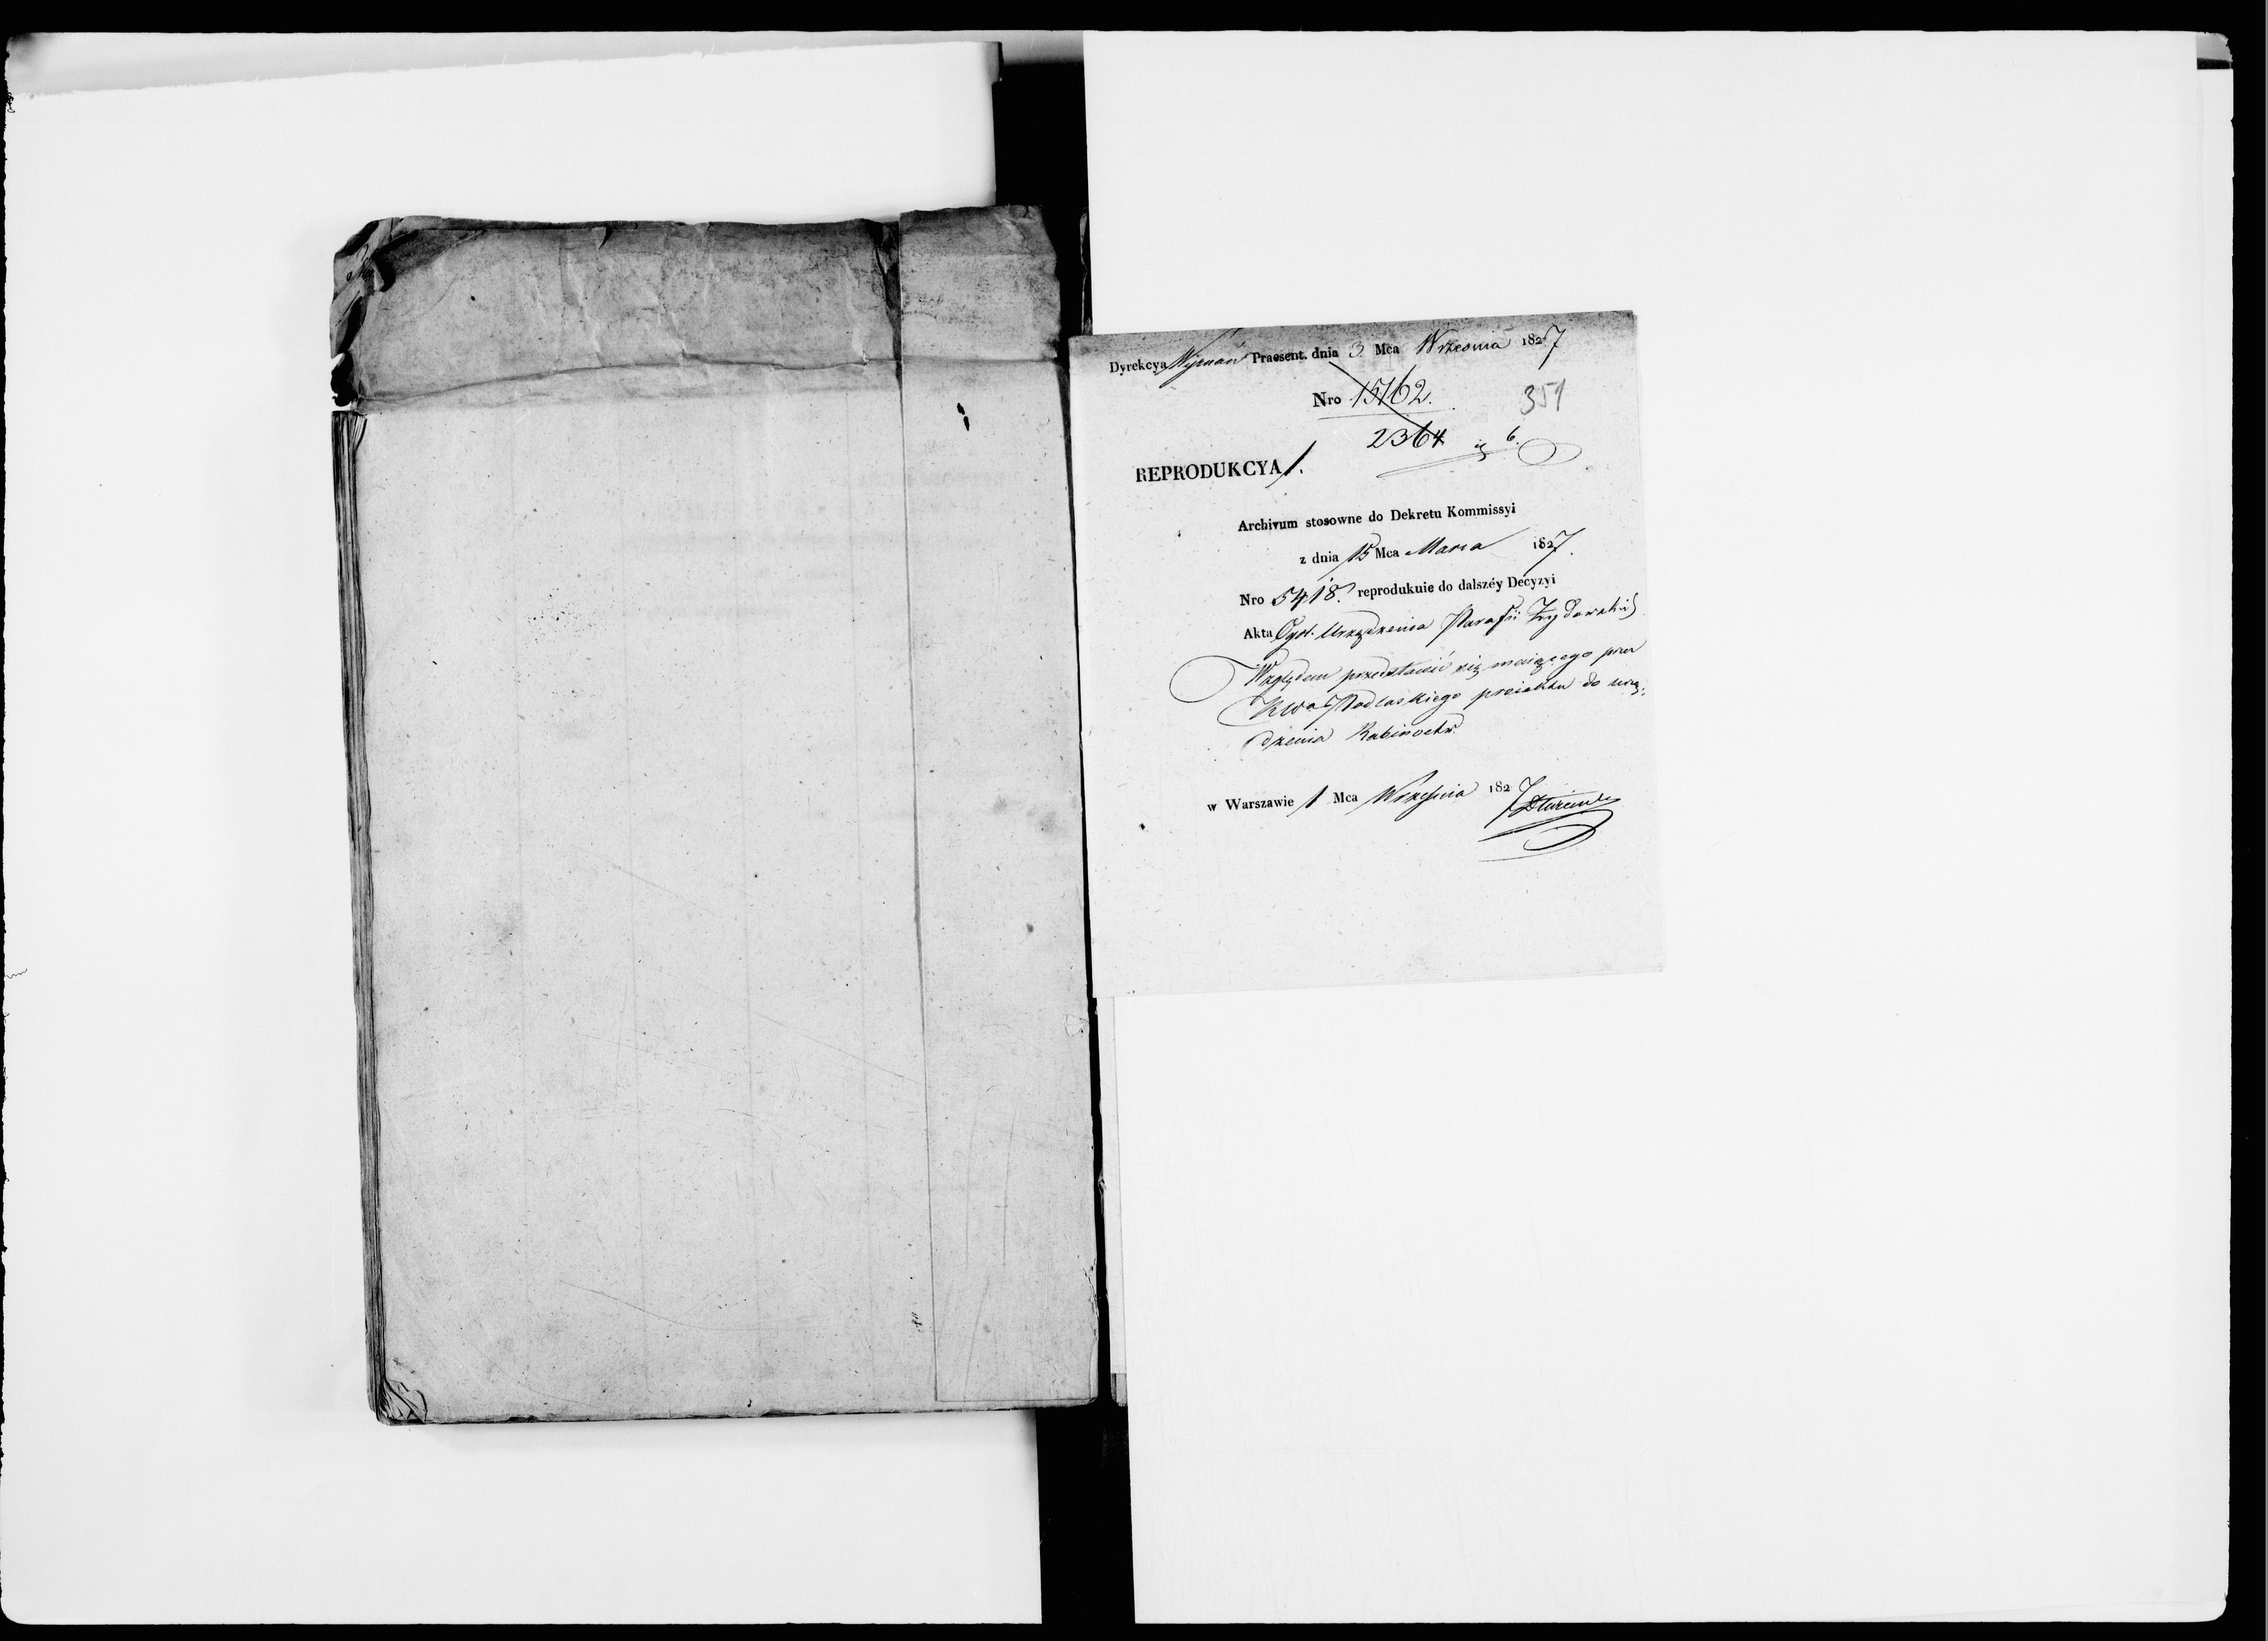 Dyrekcya Wyznań Praesent. dnia 3 Mca Września 1827
Nro 15162.
351
2364 6.
REPRODUKCYA 1.
Archivum stosowne do Dekretu Kommissyi
z dnia 15 Mca Marca 1827.
Nro 5418. reprodukuie do dalszéy Decyzyi
Akta Ogól. Urządzenia Parafii Żydowskich
Względem przedstawić się maiącego przez
KWa Podlaskiego proiektu do urzą-
dzenia Rabinostw.
w Warszawie 1 Mca Września 1827